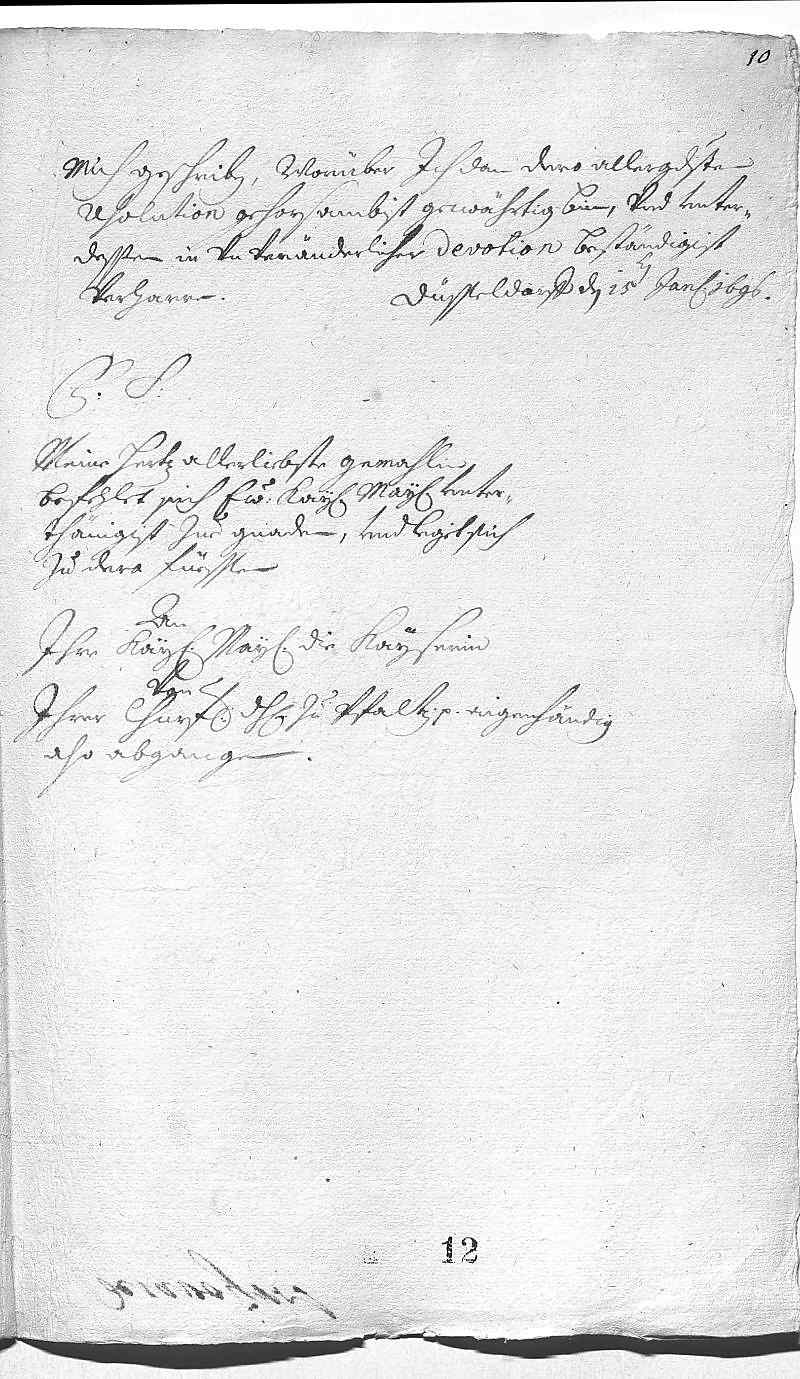 10
Mich geschrieben, Worüber Ich dan dero allergdste
Resolution gehorsambst gewährtig bin, Vnd vnter-
dessen in Vnveränderlicher Devotion beständigist
Verharre.
Düsseldorff den 15t Jan: 1696.
P. S.
Meine Hertz allerliebste gemahlin
befehlet sich Ew: Kayl: Mayl: vnter-
thänigist zue gnaden, vnd legt sich
Zu dero füessen
An
Ihre Kayl: Mayl: die Kayserin
Von
Ihrer Churf: dhl: zu Pfaltz p. eigenhändig
also abgangen.
12